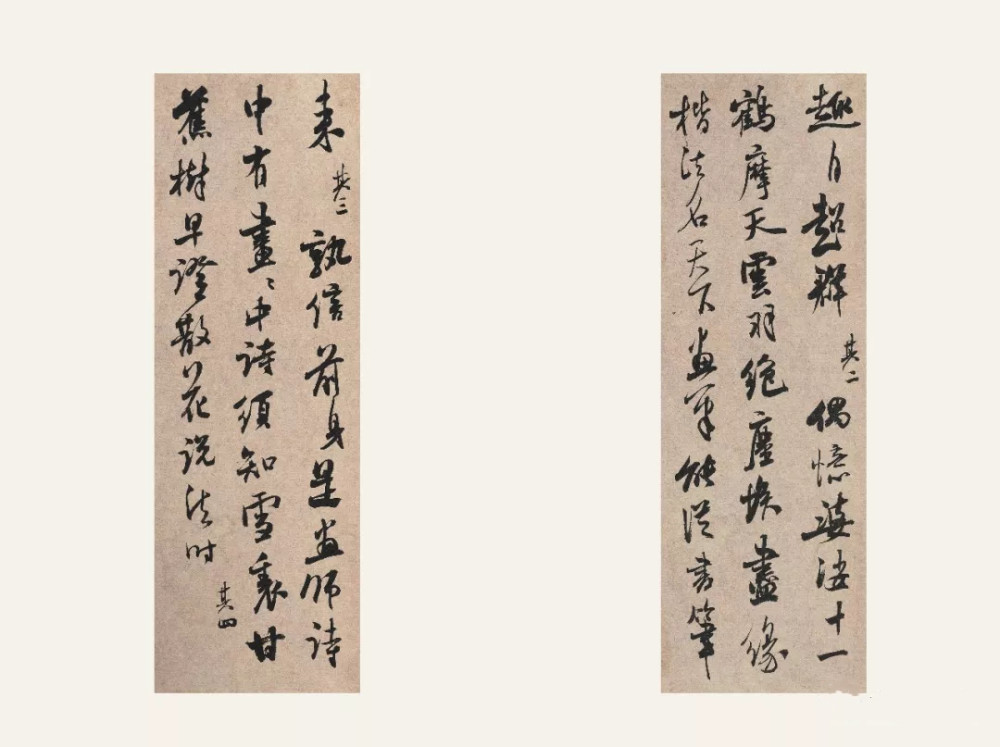 趣自超群 其二 偶憶十一
鶴摩天雲羽絕塵埃盡緣
楷法名天下畫筆能從書筆
來 其三 孰信前身是畫師詩
中有畫〻中詩須知雪裏甘
蕉樹早證散花說法時
其四